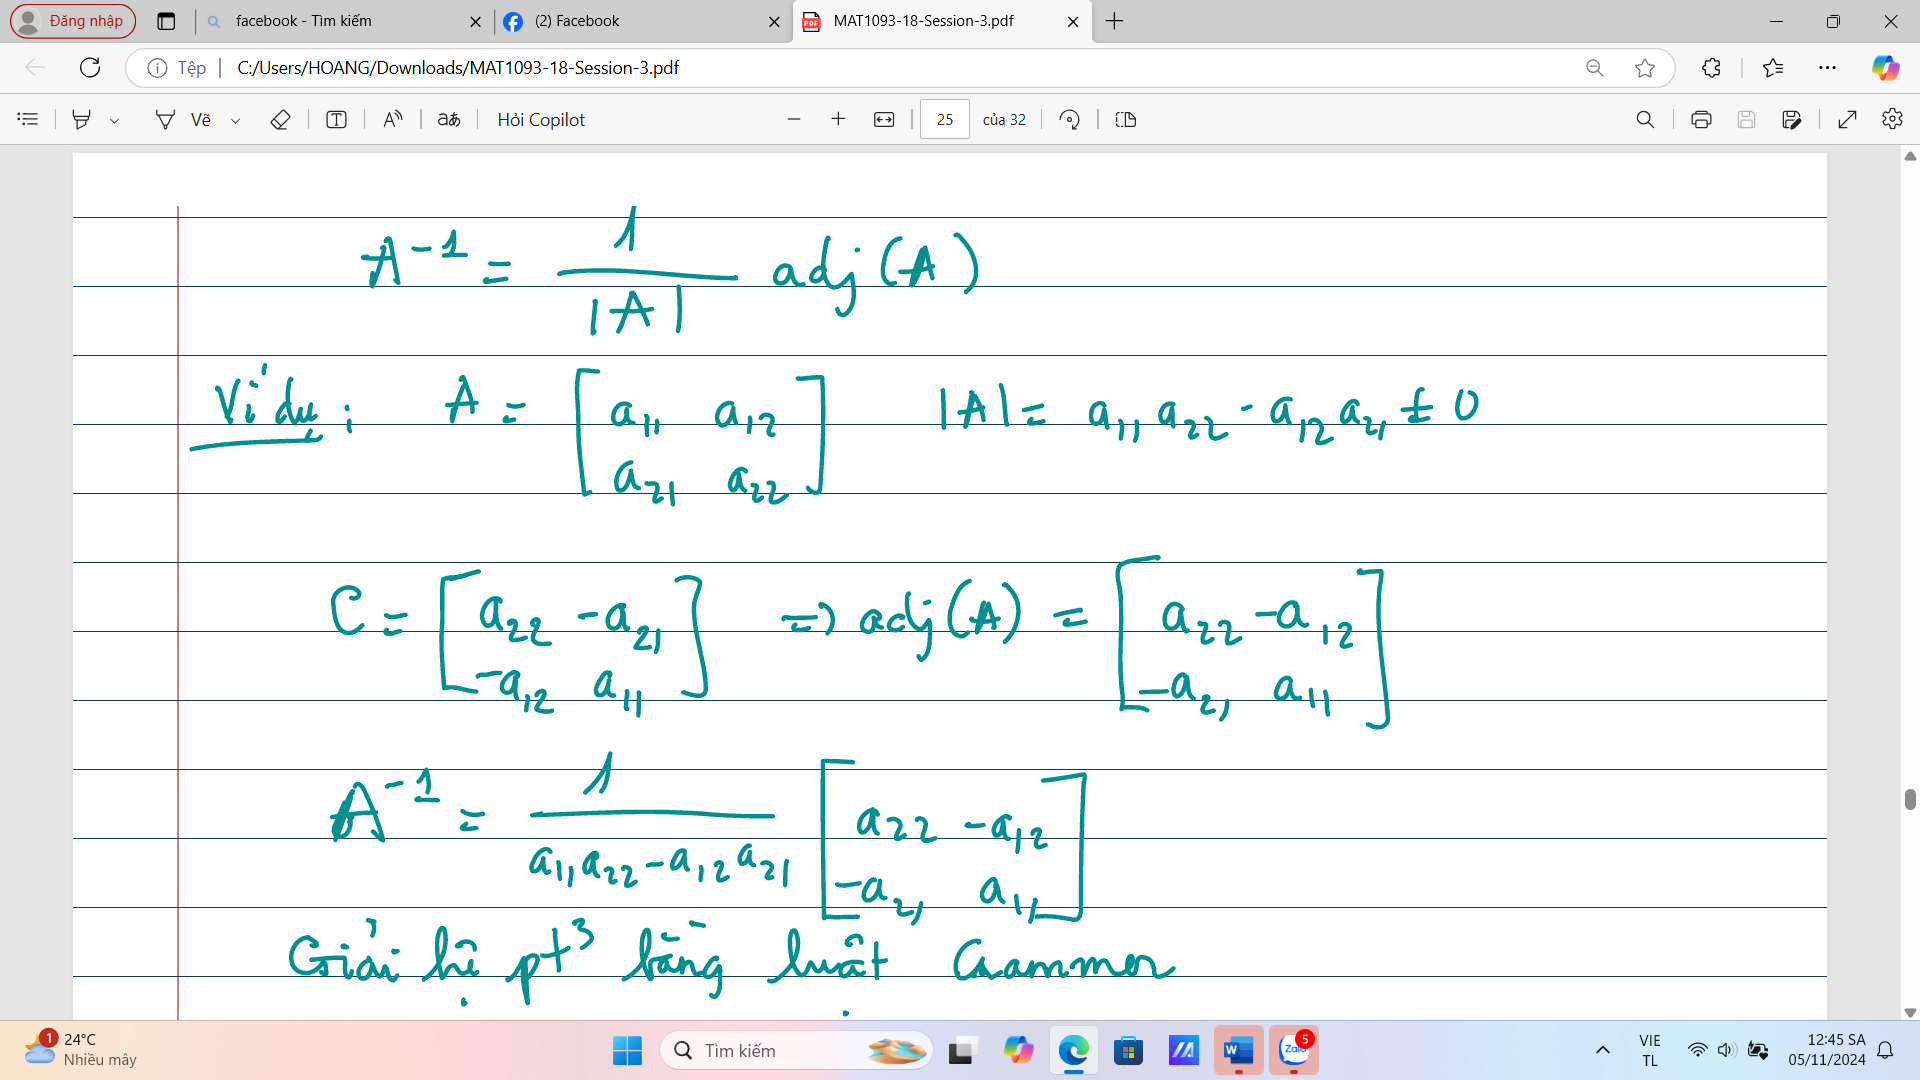 Đăng nhập
facebook - Tìm kiếm
(2) Facebook
MAT1093-18-Session-3.pdf
Tệp
C:/Users/HOANG/Downloads/MAT1093-18-Session-3.pdf
Vẽ
aあ
Hỏi Copilot
25
của 32
A⁻¹ = 1/|A| adj(A)
Ví dụ: A = [a₁₁ a₁₂; a₂₁ a₂₂] |A| = a₁₁a₂₂ - a₁₂a₂₁ ≠ 0
C = [a₂₂ -a₂₁; -a₁₂ a₁₁] => adj(A) = [a₂₂ -a₁₂; -a₂₁ a₁₁]
A⁻¹ = 1/(a₁₁a₂₂ - a₁₂a₂₁) [a₂₂ -a₁₂; -a₂₁ a₁₁]
Giải hệ pt³ bằng luật Crammer
1
24°C
Nhiều mây
Tìm kiếm
Zalo
5
VIE
TL
12:45 SA
05/11/2024